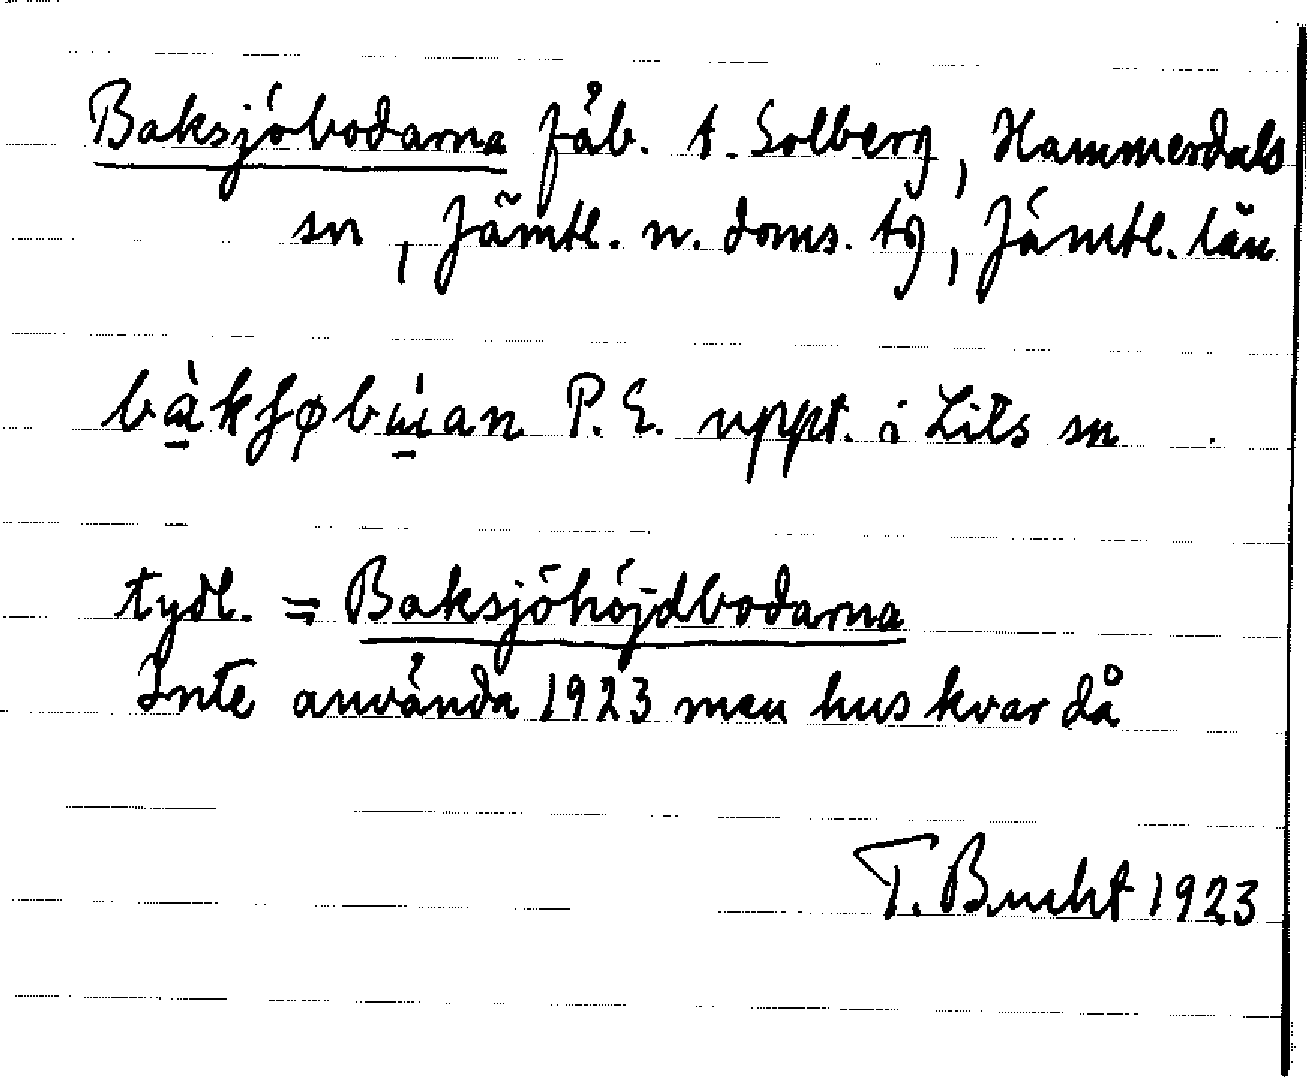 Baksjöbodarna fäb. t. Solberg, Hammerdals
sn, Jämtl. n. doms. tg, Jämtl. län
P. E. uppt. i Lits sn
tydl. = Baksjöhöjdbodarna
Inte använda 1923 men hus kvar då
T. Bucht 1923